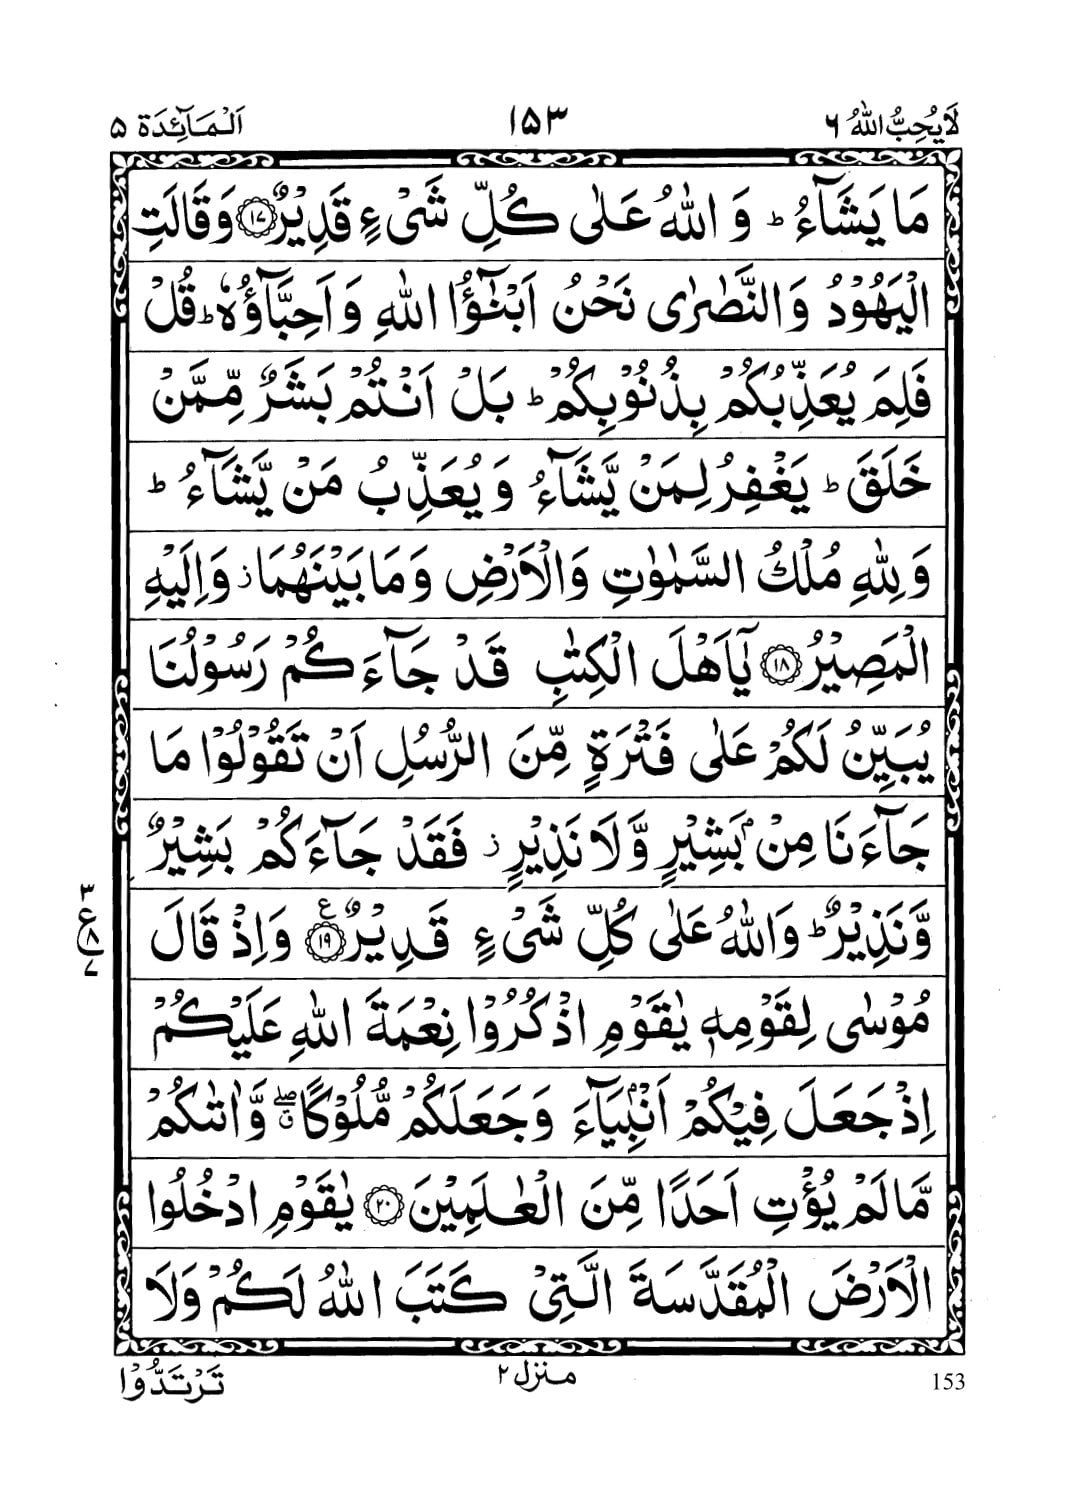 لَا يُحِبُّ اللّٰهُ ۶ ۱۵۳ اَلْمَآئِدَة ۵
مَا يَشَآءُ ؕ وَ اللّٰهُ عَلٰى كُلِّ شَىْءٍ قَدِيْرٌ ۱۷ وَقَالَتِ
الْيَهُوْدُ وَالنَّصٰرٰى نَحْنُ اَبْنٰٓؤُا اللّٰهِ وَ اَحِبَّآؤُهٗ ؕ قُلْ
فَلِمَ يُعَذِّبُكُمْ بِذُنُوْبِكُمْ ؕ بَلْ اَنْتُمْ بَشَرٌ مِّمَّنْ
خَلَقَ ؕ يَغْفِرُ لِمَنْ يَّشَآءُ وَ يُعَذِّبُ مَنْ يَّشَآءُ ؕ
وَلِلّٰهِ مُلْكُ السَّمٰوٰتِ وَالْاَرْضِ وَمَا بَيْنَهُمَا ز وَاِلَيْهِ
الْمَصِيْرُ ۱۸ يٰٓاَهْلَ الْكِتٰبِ قَدْ جَآءَكُمْ رَسُوْلُنَا
يُبَيِّنُ لَكُمْ عَلٰى فَتْرَةٍ مِّنَ الرُّسُلِ اَنْ تَقُوْلُوْا مَا
جَآءَنَا مِنْۢ بَشِيْرٍ وَّلَا نَذِيْرٍ ز فَقَدْ جَآءَكُمْ بَشِيْرٌ
وَّنَذِيْرٌ ؕ وَاللّٰهُ عَلٰى كُلِّ شَىْءٍ قَدِيْرٌ ۱۹ ع وَاِذْ قَالَ
۳
ع ۸
۷
مُوْسٰى لِقَوْمِهٖ يٰقَوْمِ اذْكُرُوْا نِعْمَةَ اللّٰهِ عَلَيْكُمْ
اِذْ جَعَلَ فِيْكُمْ اَنْۢبِيَآءَ وَجَعَلَكُمْ مُّلُوْكًا ۖ ن وَّاٰتٰىكُمْ
مَّا لَمْ يُؤْتِ اَحَدًا مِّنَ الْعٰلَمِيْنَ ۲۰ يٰقَوْمِ ادْخُلُوا
الْاَرْضَ الْمُقَدَّسَةَ الَّتِىْ كَتَبَ اللّٰهُ لَكُمْ وَلَا
تَرْتَدُّوْا منزل ۲ 153